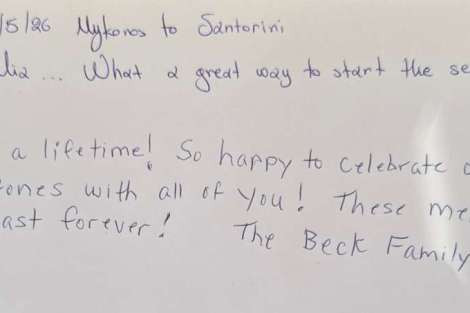 /5/26 Mykonos to Santorini
lia ... What a great way to start the se
a lifetime! So happy to celebrate
ones with all of you! These me
ast forever! The Beck Family